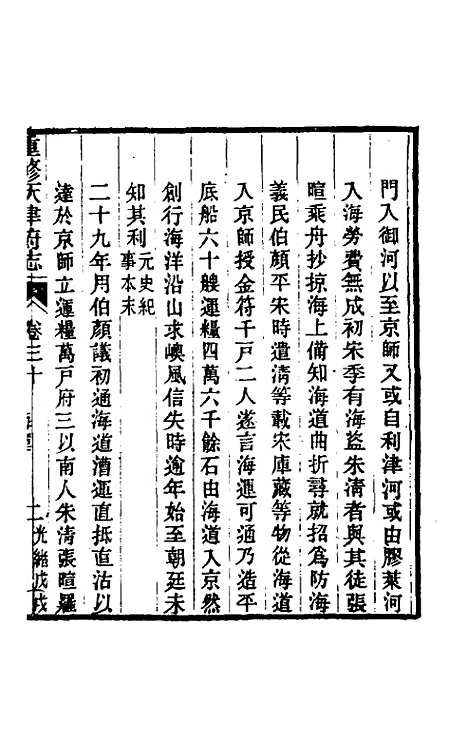 門入御河以至京師又或自利津河或由膠萊河
入海勞費無成初宋季有海盜朱淸者與其徒張
瑄乘舟抄掠海上備知海道曲折尋就招爲防海
義民伯顏平宋時遣淸等載宋庫藏等物從海道
入京師授金符千戶二人遂言海運可通乃造平
底船六十艘運糧四萬六千餘石由海道入京然
創行海洋沿山求嶼風信失時逾年始至朝廷未
知其利元史紀事本末
二十九年用伯顏議初通海道漕運直抵直沽以
達於京師立運糧萬戶府三以南人朱淸張瑄羅
重修天津府志 卷三十 二 光緖戊戌